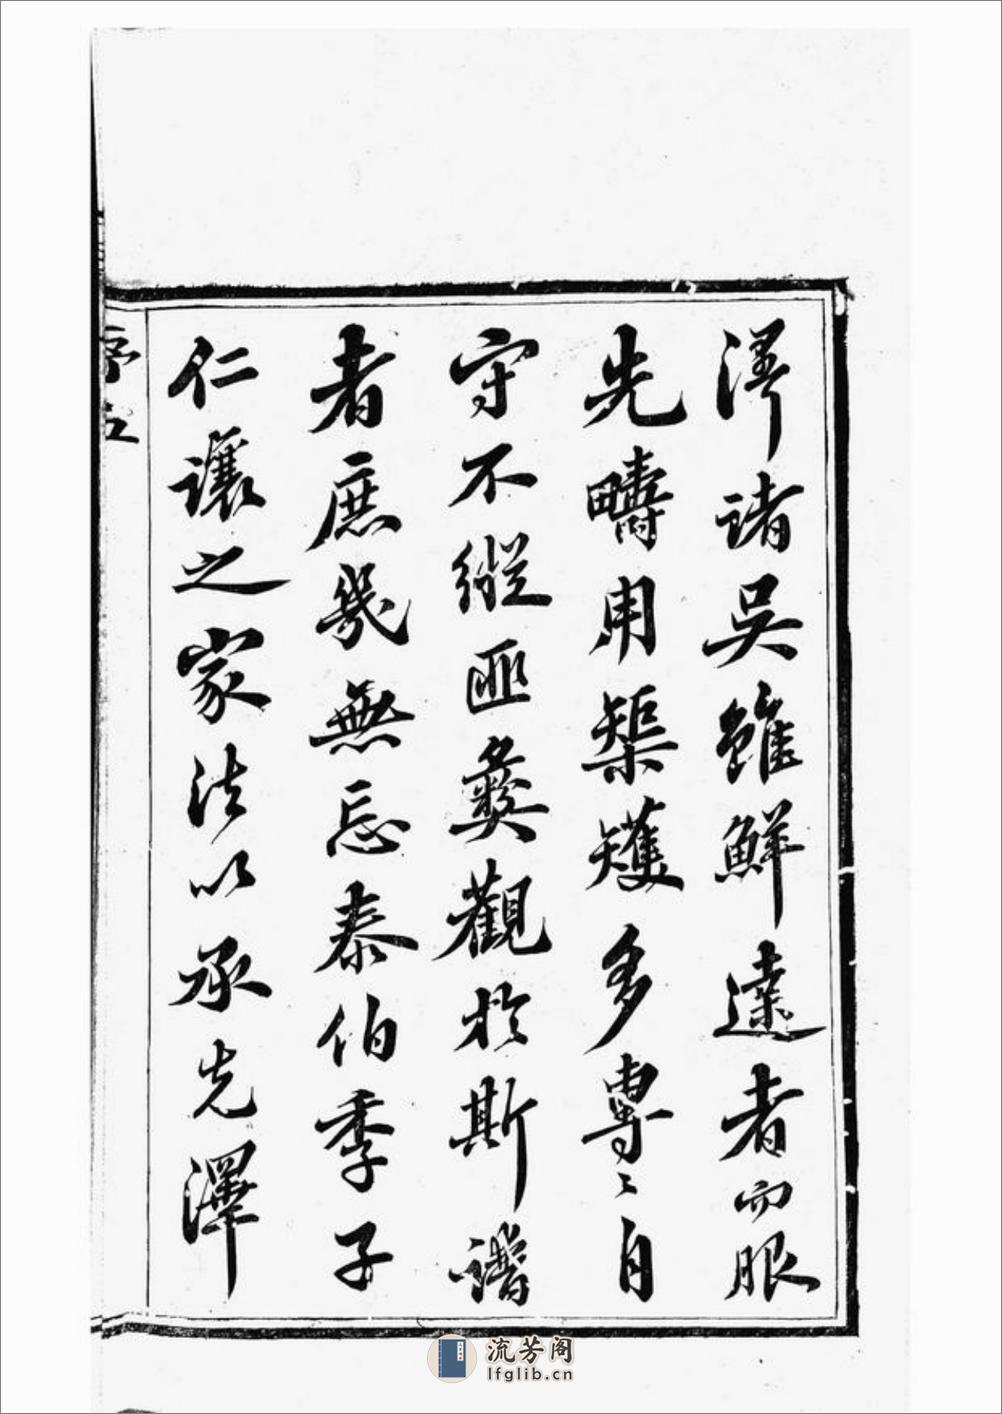 諸吳雖鮮達者而服
先疇用榘矱多專〻自
守不縱匪彝觀於斯譜
者庶幾無忘泰伯季子
仁讓之家法以承先澤
序
流芳阁
lfglib.cn